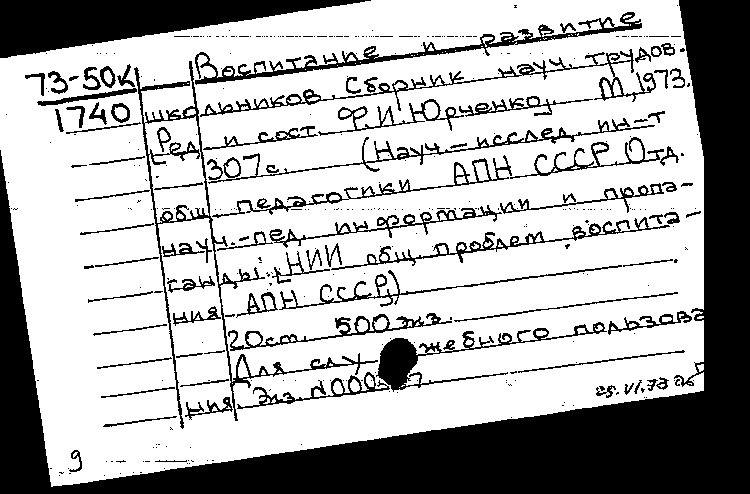 73-50к Воспитание и развитие
1740 школьников. Сборник науч. трудов.
[Ред. и сост. Ф.И. Юрченко]. М., 1973.
307 с. (Науч.-исслед. ин-т
общ. педагогики АПН СССР. Отд.
науч.-пед. информации и пропа-
ганды; [НИИ общ. проблем воспита-
ния АПН СССР])
20 ст. 500 экз.
Для служебного пользова
ния. Экз. N000
9